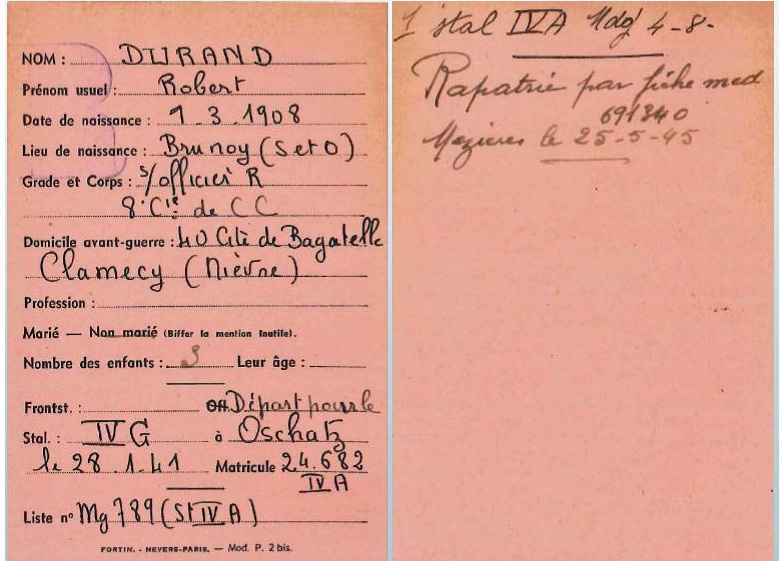 NOM : DURAND
Prénom usuel : Robert
Date de naissance : 1-3.1908
Lieu de naissance : Brunoy (S et O)
Grade et Corps : s/officier R
8° Cie de CC
Domicile avant-guerre : 40 Cité de Bagatelle
Clamecy (Nièvre)
Profession :
Marié — Non marié (Biffer la mention inutile).
Nombre des enfants : 3 Leur âge :
Frontst. : Off. Départ pour le
Stal. : IV G à Oschatz
le 28.1.41 Matricule 24.682
IV A
Liste n° Mg 789 (St IV A)
FORTIN. - NEVERS-PARIS. — Mod. P. 2 bis.
1 stal IV A Mdg 4-8-
Rapatrié par fiche med
691340
Mezieres le 25-5-45